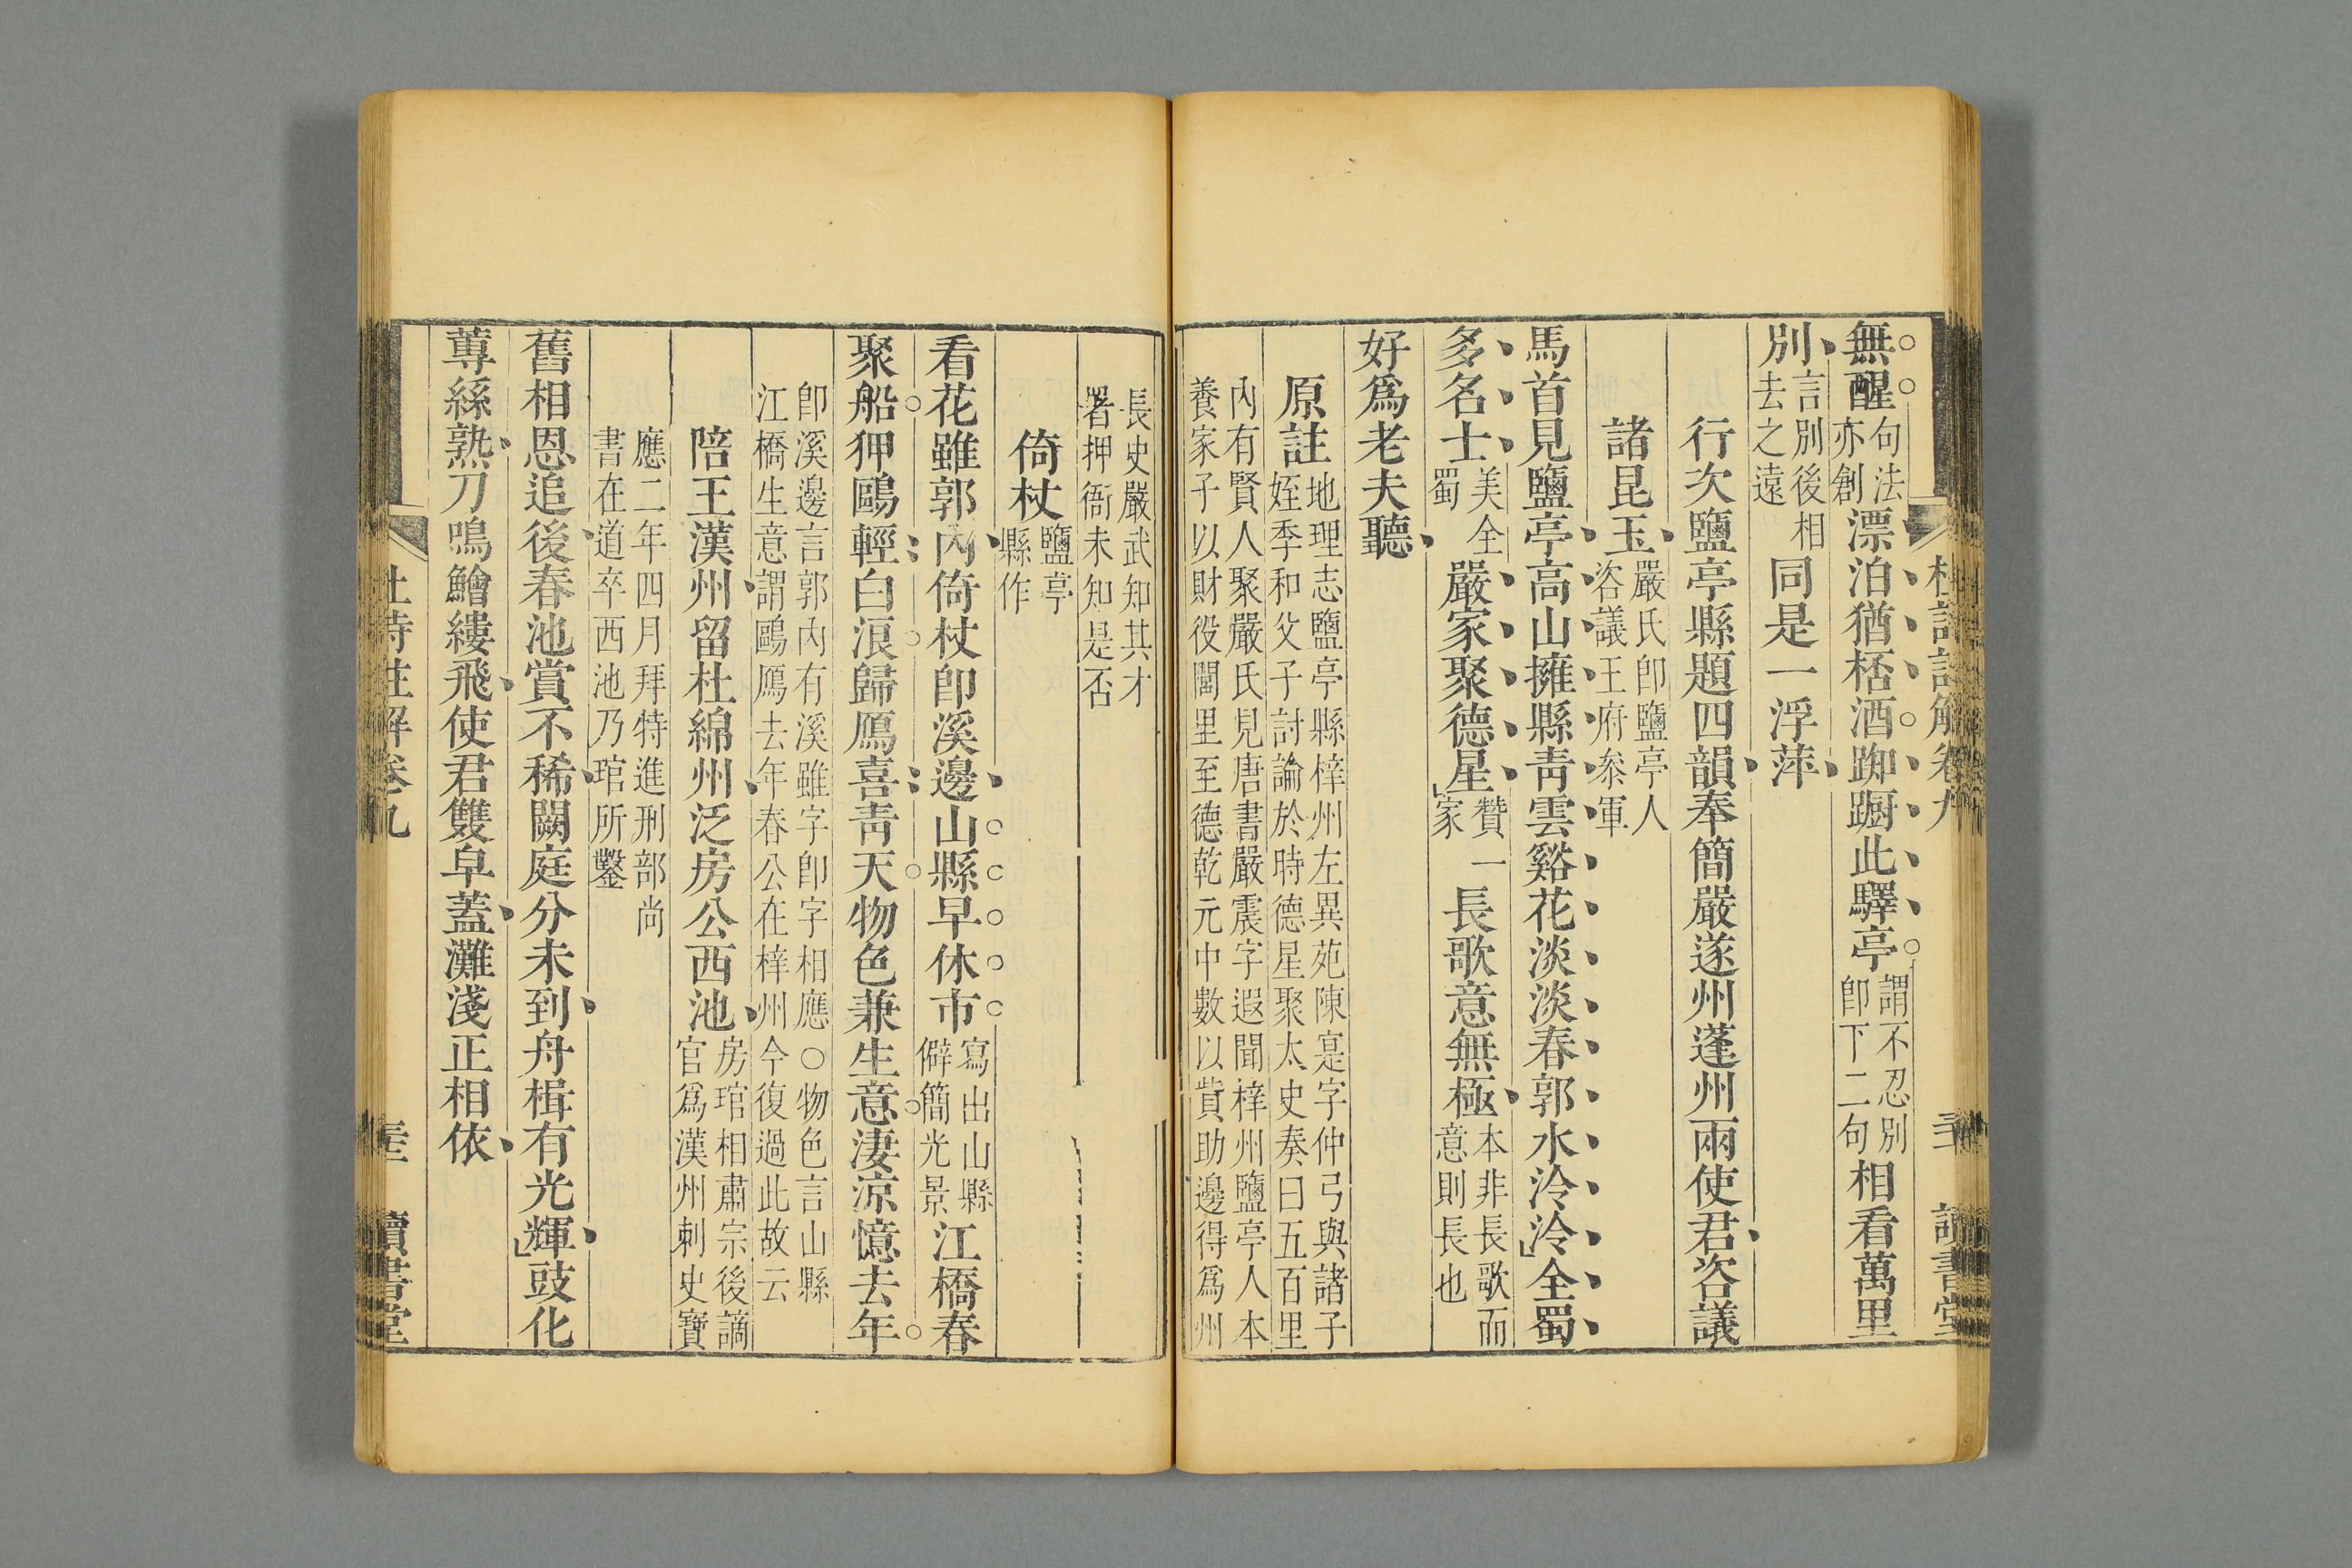 無醒句法亦創漂泊猶杯酒踟躕此驛亭謂不忍別卽下二句相看萬里
別言別後相去之遠同是一浮萍
行次鹽亭縣題四韻奉簡嚴遂州蓬州兩使君咨議
諸昆玉嚴氏卽鹽亭人咨議王府叅軍
馬首見鹽亭高山擁縣靑雲谿花淡淡春郭水泠泠全蜀
多名士美全蜀嚴家聚德星贊一家長歌意無極本非長歌而意則長也
好爲老夫聽
原註地理志鹽亭縣梓州左異苑陳寔字仲弓與諸子姪季和父子討論於時德星聚太史奏曰五百里
內有賢人聚嚴氏見唐書嚴震字遐聞梓州鹽亭人本養家子以財役閭里至德乾元中數以貲助邊得爲州
長史嚴武知其才署押衙未知是否
倚杖鹽亭縣作
看花雖郭內倚杖卽溪邊山縣早休市寫出山縣僻簡光景江橋春
聚船狎鷗輕白浪歸鴈喜靑天物色兼生意淒涼憶去年
卽溪邊言郭內有溪雖字卽字相應○物色言山縣江橋生意謂鷗鴈去年春公在梓州今復過此故云
陪王漢州留杜綿州泛房公西池房琯相肅宗後謫官爲漢州刺史寶
應二年四月拜特進刑部尚書在道卒西池乃琯所鑿
舊相恩追後春池賞不稀闕庭分未到舟楫有光輝豉化
蓴絲熟刀鳴鱠縷飛使君雙皁蓋灘淺正相依
杜詩註解卷九 讀書堂